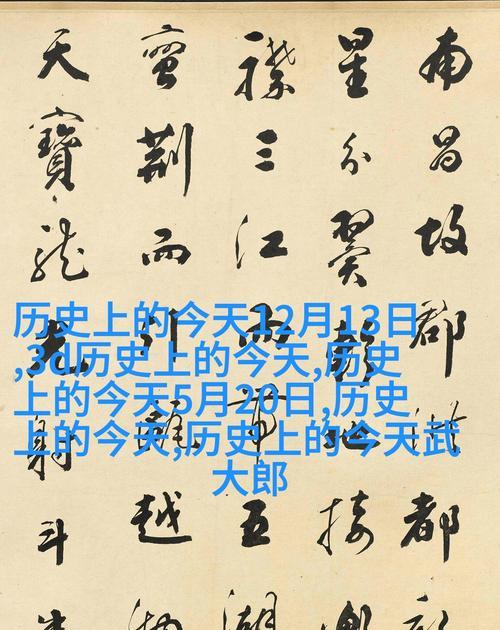 南昌故郡洪都
星分翼軫地接
襟三江而帶五湖
蠻荊而引甌越
天寶龍光射斗
历史上的今天12月13日
,3d历史上的今天,历史
上的今天5月20日,历史
上的今天,历史上的今天武
大郎